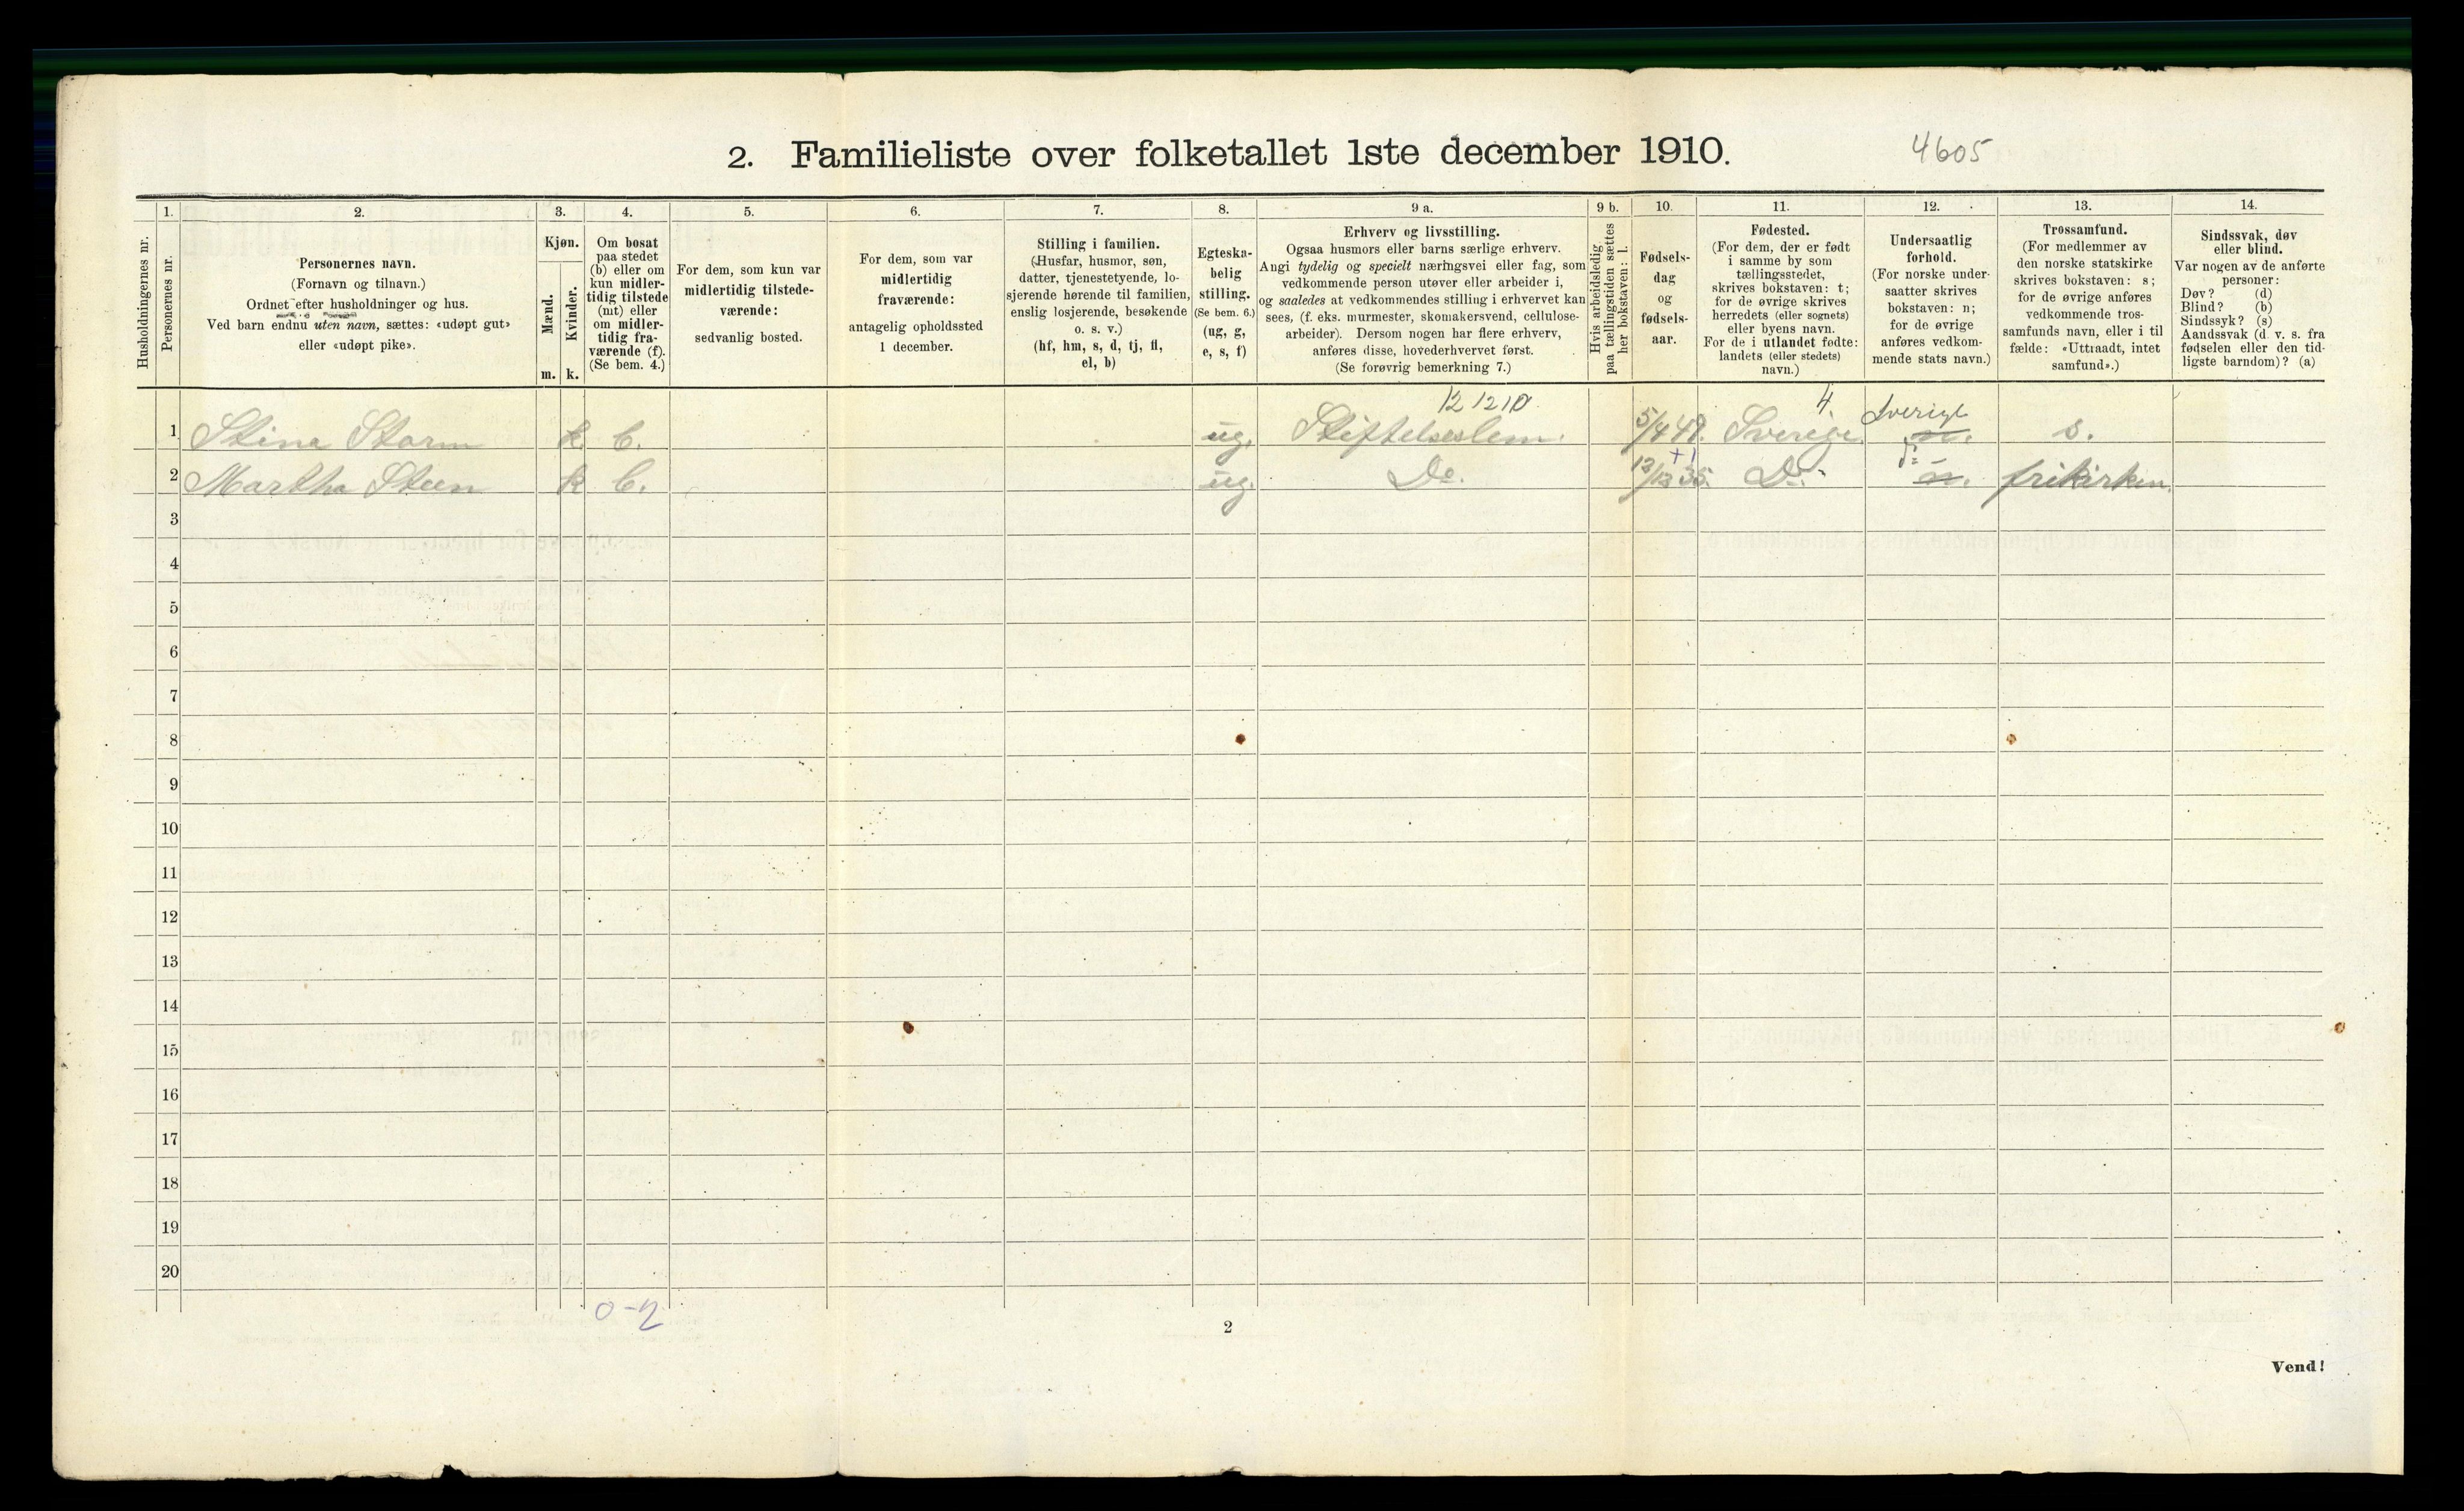 2. Familieliste over folketallet 1ste december 1910.
4605
Husholdningernes nr.
1.
Personernes nr.
2.
Personernes navn.
(Fornavn og tilnavn.)
Ordnet efter husholdninger og hus.
Ved barn endnu uten navn, sættes: «udøpt gut»
eller «udøpt pike».
3.
Kjøn.
Mænd.
Kvinder.
m. k.
4.
Om bosat
paa stedet
(b) eller om
kun midler-
tidig tilstede
(mt) eller
om midler-
tidig fra-
værende (f).
(Se bem. 4.)
5.
For dem, som kun var
midlertidig tilstede-
værende:
sedvanlig bosted.
6.
For dem, som var
midlertidig
fraværende:
antagelig opholdssted
1 december.
7.
Stilling i familien.
(Husfar, husmor, søn,
datter, tjenestetyende, lo-
sjerende hørende til familien,
enslig losjerende, besøkende
o. s. v.)
(hf, hm, s, d, tj, fl,
el, b)
8.
Egteska-
belig
stilling.
(Se bem. 6.)
(ug, g,
e, s, f)
9 a.
Erhverv og livsstilling.
Ogsaa husmors eller barns særlige erhverv.
Angi tydelig og specielt næringsvei eller fag, som
vedkommende person utøver eller arbeider i,
og saaledes at vedkommendes stilling i erhvervet kan
sees, (f. eks. murmester, skomakersvend, cellulose-
arbeider). Dersom nogen har flere erhverv,
anføres disse, hovederhvervet først.
(Se forøvrig bemerkning 7.)
9 b.
Hvis arbeidsledig
paa tællingstiden sættes
her bokstaven: l.
10.
Fødsels-
dag
og
fødsels-
aar.
11.
Fødested.
(For dem, der er født
i samme by som
tællingsstedet,
skrives bokstaven: t;
for de øvrige skrives
herredets (eller sognets)
eller byens navn.
For de i utlandet fødte:
landets (eller stedets)
navn.)
12.
Undersaatlig
forhold.
(For norske under-
saatter skrives
bokstaven: n;
for de øvrige
anføres vedkom-
mende stats navn.)
13.
Trossamfund.
(For medlemmer av
den norske statskirke
skrives bokstaven: s;
for de øvrige anføres
vedkommende tros-
samfunds navn, eller i til
fælde: «Uttraadt, intet
samfund».)
14.
Sindssvak, døv
eller blind.
Var nogen av de anførte
personer:
Døv? (d)
Blind? (b)
Sindssyk? (s)
Aandssvak (d. v. s. fra
fødselen eller den tid-
ligste barndom)? (a)
12 12 10 4. Sverige
1 Stina Storm k b. ug. Stiftelseslem. 5/4 48. Sverige. n. s.
2 Martha Steen k b. ug. Do. 35. Do. do n. frikirken.
3
4
5
6
7
8
9
10
11
12
13
14
15
16
17
18
19
20
0-2
2
Vend!